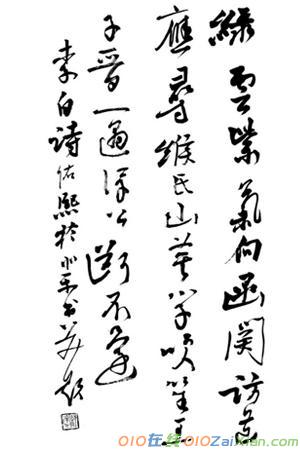 綠雲紫氣向函関訪道
應尋緱氏山莫学吹笙王
子晉一遇浮丘断不還
李白詩佑熙於北京书
010在线 010Zaixian.com